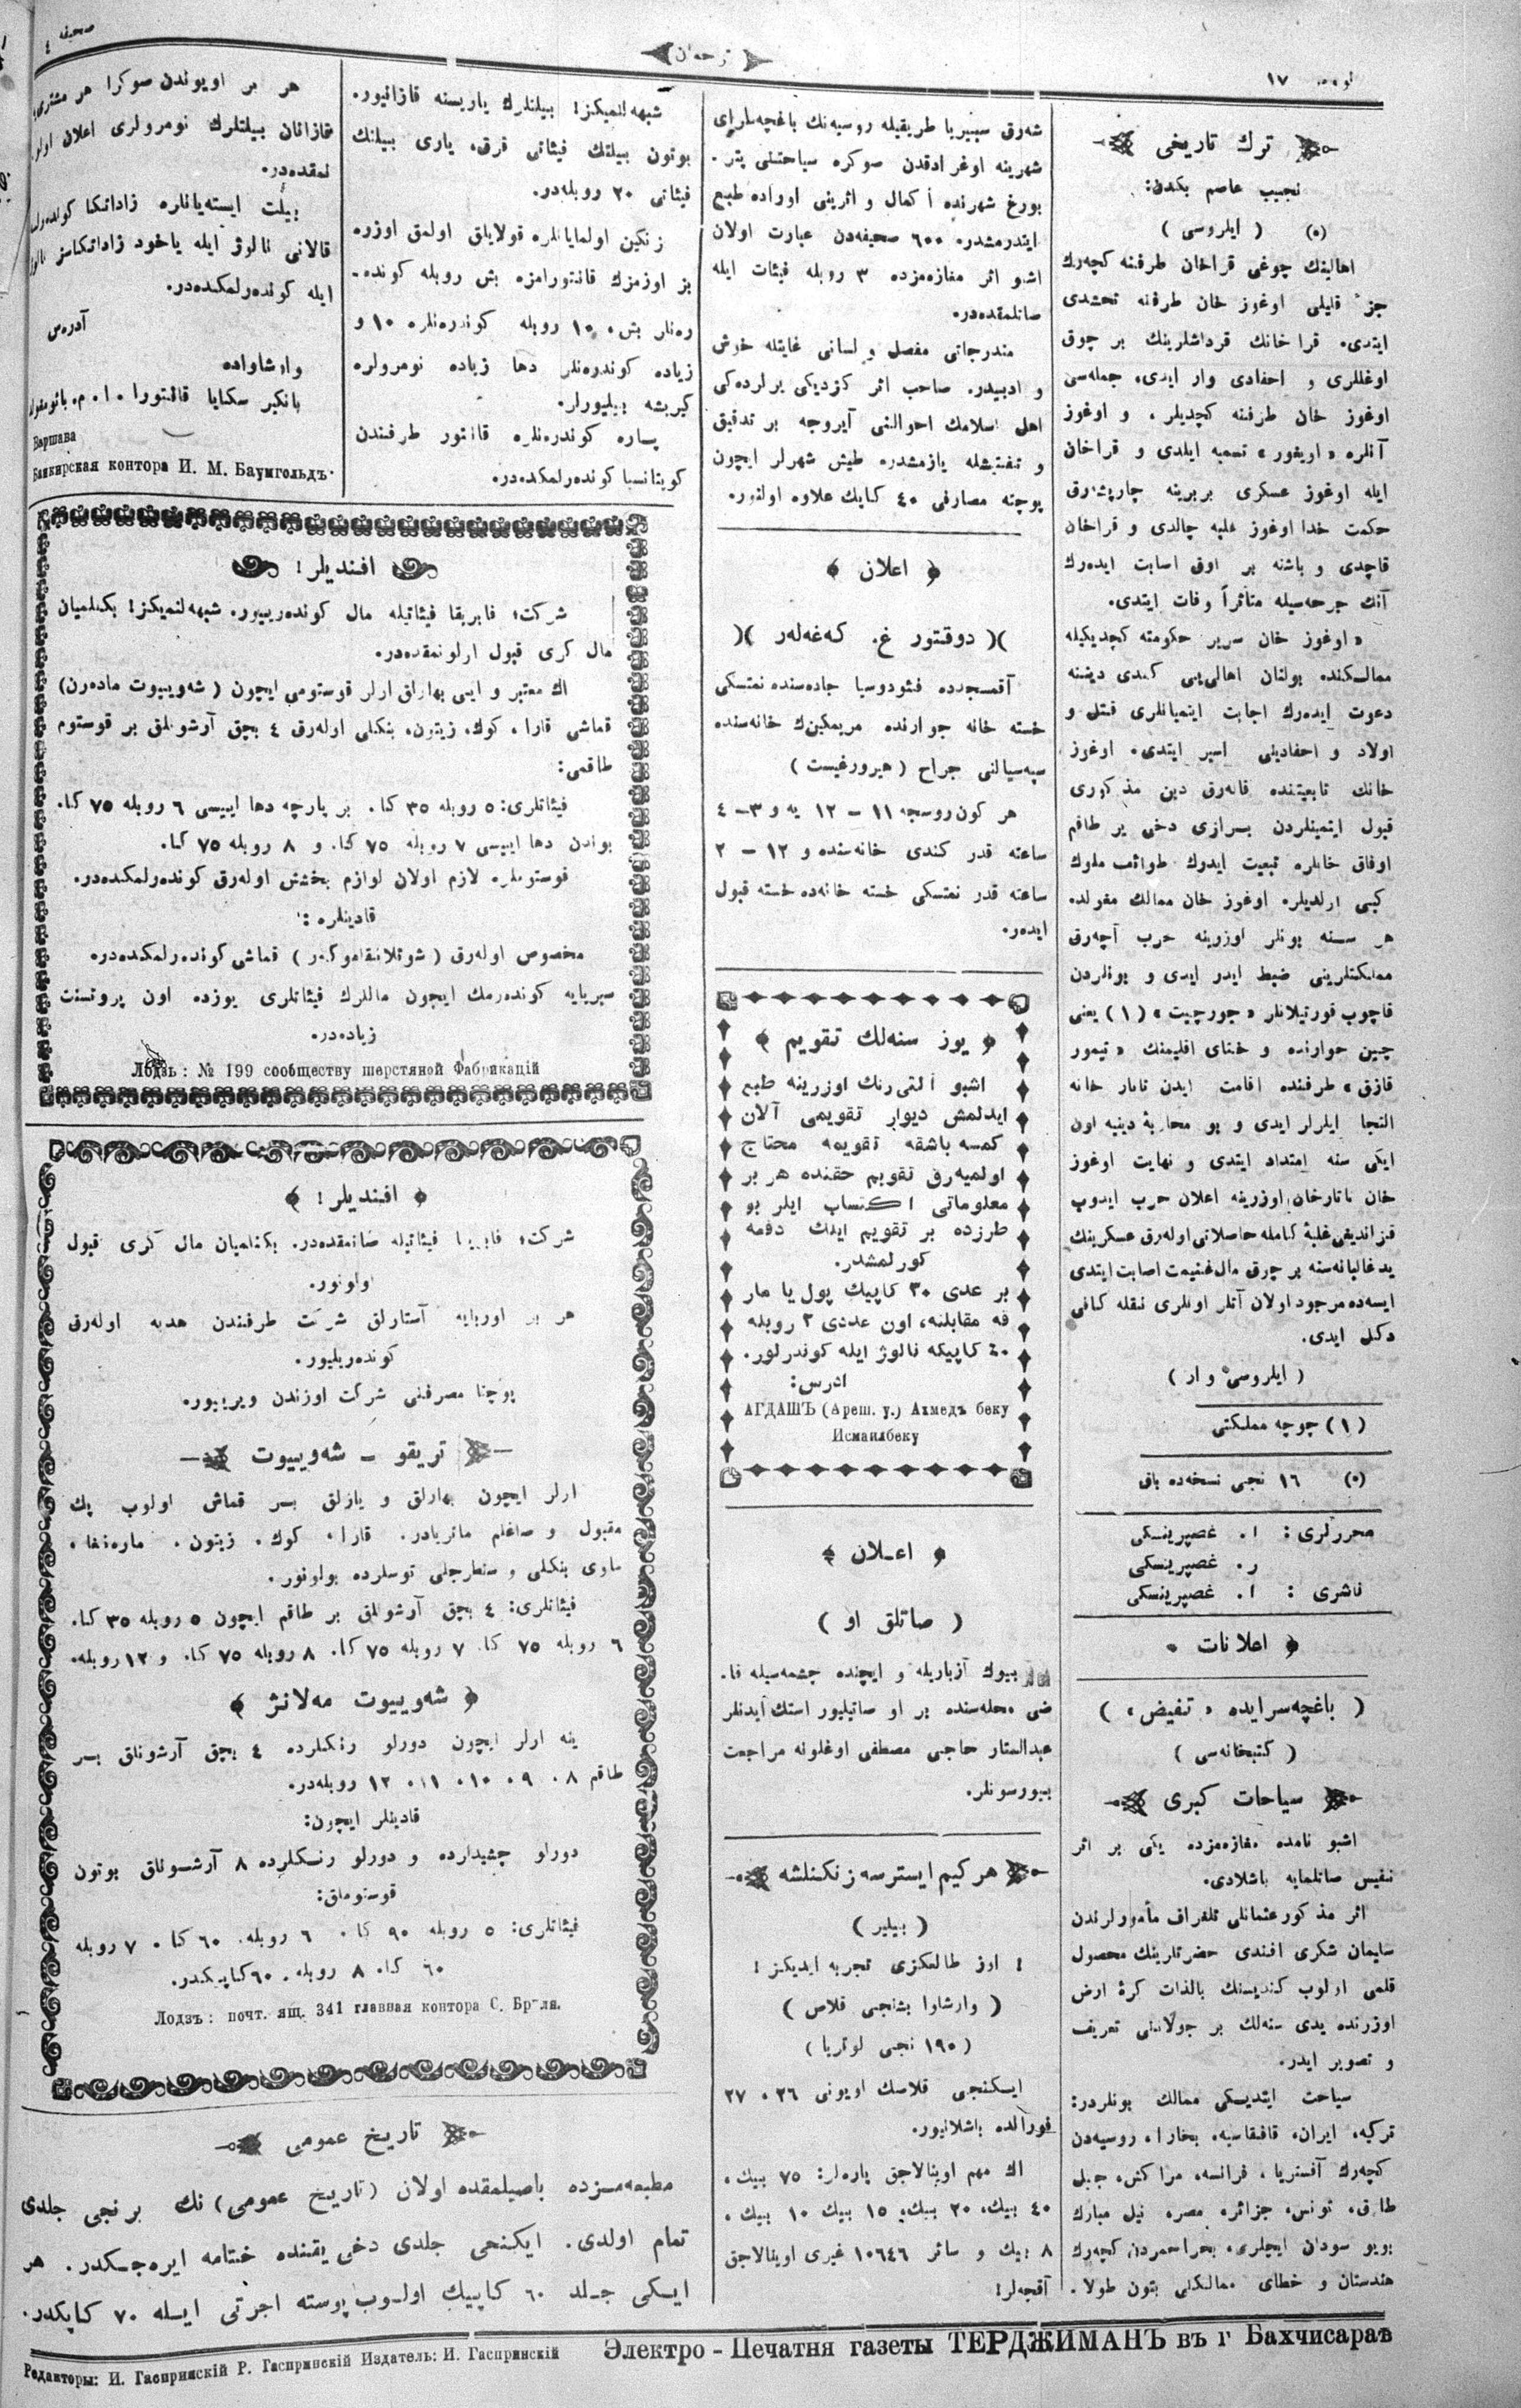 نومرو ١٧
ترجمان
صحیفه ٤
ترك تاریخی
نجیب عاصم بكدن:
(٥) ( ایلروسی )
اهالینك چوغی قراخان طرفنه كچه‌رك
جزء قلیلی اوغوز خان طرفنه تحشدی
ایتدی. قرا خانك قرداشلرینك بر چوق
اوغللری و احفادی وار ایدی، جمله‌سی
اوغوز خان طرفنه كچدیلر، و اوغوز
آنلره «اویغور» تسمیه ایلدی و قراخان
ایله اوغوز عسكری بربرینه چارپشه‌رق
حكمت خدا اوغوز غلبه چالدی و قراخان
قاچدی و باشنه بر اوق اصابت ایده‌رك
آنك جرحه‌سیله متاثراً وفات ایتدی.
«اوغوز خان سریر حكومته كچدیكیله
ممالكنده بولنان اهالی‌یی كندی دیننه
دعوت ایده‌رك اجابت ایتمیانلری قتل و
اولاد و احفادینی اسیر ایتدی. اوغوز
خانك تابعیتنده قاله‌رق دین مذكوری
قبول ایتمینلردن برازی دخی بر طاقم
اوفاق خانلره تبعیت ایدوك طوائف ملوك
كبی اولدیلر. اوغوز خان ممالك مغولده
هر سنه بونلر اوزرینه حرب آچه‌رق
مملكتلرینی ضبط ایدر ایدی و بونلردن
قاچوب قورتیلانلر «جورجیت» (١) یعنی
چین جوارنده و خنای اقلیمنك «تیمور
قازق» طرفنده اقامت ایدن تاتار خانه
التجا ایلرلر ایدی و بو محاربۀ دینیه اون
ایكی سنه امتداد ایتدی و نهایت اوغوز
خان تاتارخان اوزرینه اعلان حرب ایدوب
قزاندیغی غلبۀ كامله حاصلاتی اوله‌رق عسكرینك
ید غالبانه‌سنه بر چوق مال غنیمت اصابت ایتدی
ایسه‌ده موجود اولان آتلر اونلری نقله كافی
دكل ایدی.
( ایلروسی وار )
(١) چوچه مملكتی
(٥) ١٦ نجی نسخه‌ده باق
محررلری: ا. غصپرینسكی
ر. غصپرینسكی
ناشری: ا. غصپرینسكی
اعلانات
( باغچه‌سرایده «تنفیض» )
( كتبخانه‌سی )
سیاحات كبری
اشبو نامده مغازه‌مزده یكی بر اثر
نفیس صاتلمایه باشلادی.
اثر مذكور عثمانلی تلغراف مأمورلرندن
سلیمان شكری افندی حضرتلرینك محصول
قلمی اولوب كندیسنك بالذات كرۀ ارض
اوزرنده یدی سنه‌لك بر جولاننی تعریف
و تصویر ایدر.
سیاحت ایتدیكی ممالك بونلردر:
تركیه، ایران، قافقاسیه، بخارا، روسیه‌دن
كچه‌رك آفستریا، فرانسه، مراكش، جبل
طارق، تونس، جزائر، مصر، نیل مبارك
بویو سودان ایچلری، بحر احمردن كچه‌رك
هندستان و خطای ممالكنی بتون طولا.
شه‌رق سیبیریا طریقیله روسیه‌نك باغچه‌سرای
شهرینه اوغرادقدن صوكره سیاحتنی پتر.
بورغ شهرنده اكمال و اثرینی اوراده طبع
ایتدرمشدر. ٦٠٠ صحیفه‌دن عبارت اولان
اشو اثر مغازه‌مزده ٣ روبله فیئات ایله
صاتلمقده‌در.
مندرجاتی مفصل و لسانی غایتله خوش
و ادبیدر. صاحب اثر كزدیكی یرلرده‌كی
اهل اسلامك احوالنی آیروجه بر تدقیق
و تفتیشله یازمشدر. طیش شهرلر ایچون
پوچته مصارفی ٤٠ كاپك علاوه اولنور.
اعلان
)( دوقتور غ. كه‌غه‌له‌ر )(
آقمسجدده فئودوسیا جاده‌سنده نمتسكی
خسته خانه جوارنده مریمكین‌ك خانه‌سنده
سپه‌سیالنی جراح ( هیرورغیست )
هر كون روسجه ١١ – ١٢ یه و ٣ – ٤
ساعته قدر كندی خانه‌سنده و ١٢ – ٢
ساعته قدر نمتسكی خسته خانه‌ده خسته قبول
ایده‌ر.
یوز سنه‌لك تقویم
اشبو آلتی رنك اوزرینه طبع
ایدلمش دیوار تقویمی آلان
كمسه باشقه تقویمه محتاج
اولمیه‌رق تقویم حقنده هر بر
معلوماتی اكتساب ایلر بو
طرزده بر تقویم ایلك دفعه
كورلمشدر.
بر عدی ٣٠ كاپیك پول یا مار
قه مقابلنه، اون عددی ٢ روبله
٤٠ كاپیكه نالوژ ایله كوندرلور.
ادرس:
АГДАШЪ (Ареш. у.) Ахмедъ беку
Исмаилбеку
اعلان
( صاتلق او )
بیوك آزباریله و ایچنده چشمه‌سیله قا.
ضی محله‌سنده بر او صاتیلیور استك ایدنلر
عبدالستار حاجی مصطفی اوغلونه مراجعت
بیورسونلر.
هر كیم ایسترسه زنكنلشه
( بیلیر )
! اوز طالعكزی تجربه ایدیكز !
( وارشاوا بشنجی قلاص )
( ١٩٠ نجی لوتریا )
ایكنجی قلاسك اویونی ٢٦، ٢٧
فورالده باشلانیور.
اك مهم اوینالاجق پاره‌لر: ٧٥ بیك،
٤٠ بیك، ٢٠ بیك، ١٥ بیك ١٠ بیك،
٨ بیك و سائر ١٠٦٤٦ غیری اوینالاجق
آقچه‌لر!
شبهه‌لنمیكز! بیلتلرك یاریسنه قازانیور.
بوتون بیلتك فیئاتی فرق، یاری بیلتك
فیئاتی ٢٠ روبله‌در.
زنكین اولمایانلره قولایلق اولمق اوزره
بز اوزمزك قانتورامزه بش روبله كونده‌-
ره‌نلر بش، ١٠ روبله كوندره‌نلره ١٠ و
زیاده كوندره‌نلر دها زیاده نومرولره
كیریشه بیلیورلر.
پاره كوندره‌نلره قانتور طرفندن
كویتانسیا كونده‌رلمكده‌در.
هر بر اویوندن صوكرا هر مشتری
قازانان بیلتلرك نومرولری اعلان اولو
نمقده‌در.
بیلت ایسته‌یانلره زاداتكا كونده‌رلسه
قالانی نالوژ ایله یاخود زاداتكاسز نالوژ
ایله كونده‌رلمكده‌در.
آدره‌س
وارشاواده
بانكیر سكایا قانتورا . ا . م. بائومغولد
Варшава
Банкирская контора И. М. Баумгольдъ.
افندیلر!
شركت؛ فابریقا فیئاتیله مال كونده‌رییور. شبهه‌لنمیكز! بكنلمیان
مال كری قبول اولونمقده‌در.
اك معتبر و ایی بهارلق ارلر قوستومی ایچون ( شه‌وییوت ماده‌رن)
قماشی قارا، كوك، زیتون، بنكلی اوله‌رق ٤ بچق آرشونلق بر قوستوم
طاقمی:
فیئاتلری: ٥ روبله ٣٥ كا. بر پارچه دها اییسی ٦ روبله ٧٥ كا.
بوندن دها اییسی ٧ روبله ٧٥ كا. و ٨ روبله ٧٥ كا.
قوستوملره لازم اولان لوازم بخشش اوله‌رق كونده‌رلمكده‌در.
قادینلره:
مخصوص اوله‌رق ( شوتلانتقاموكور ) قماشی كونده‌رلمكده‌در.
سبریایه كونده‌رمك ایچون ماللرك فیئاتلری یوزده اون پروتسنت
زیاده‌در.
Лодзь: № 199 сообществу шерстяной Фабрикацій
افندیلر!
شركت؛ فابریقا فیئاتیله صاتمقده‌در. بكنلمیان مال كری قبول
اولونور.
هر بر اوربایه آستارلق شركت طرفندن هدیه اوله‌رق
كونده‌ریلیور.
پوچتا مصرفنی شركت اوزندن ویرییور.
تریقو – شه‌وییوت
ارلر ایچون بهارلق و یازلق بر قماش اولوب پك
مقبول و صاغلم ماتریادر. قارا، كوك، زیتون، ماره‌نغا،
ماوی بنكلی و سنطرجلی توسلرده بولونور.
فیئاتلری: ٤ بچق آرشونلق بر طاقم ایچون ٥ روبله ٣٥ كا.
٦ روبله ٧٥ كا. ٧ روبله ٧٥ كا. ٨ روبله ٧٥ كا. و ١٢ روبله.
شه‌وییوت مه‌لانژ
ینه ارلر ایچون دورلو رنكلرده ٤ بچق آرشونلق بر
طاقم ٨، ٩، ١٠، ١١، ١٢ روبله‌در.
قادینلر ایچون:
دورلو چشیدارده و دورلو رنكلرده ٨ آرشونلق بوتون
قوستوملق:
فیئاتلری: ٥ روبله ٩٠ كا. ٦ روبله. ٦٠ كا. ٧ روبله
٦٠ كا. ٨ روبله. ٦٠ كاپیكدر.
Лодзъ: почт. ящ. 341 главная контора С. Бреля.
تاریخ عمومی
مطبعه‌مزده باصیلمقده اولان (تاریخ عمومی) نك برنجی جلدی
تمام اولدی. ایكنجی جلدی دخی یقنده ختامه ایره‌جكدر. هر
ایكی جلد ٦٠ كاپیك اولوب پوسته اجرتی ایله ٧٠ كاپكدر.
Редакторы: И. Гаспринскій Р. Гаспринскій Издатель: И. Гаспринскій
Электро-Печатня газеты ТЕРДЖИМАНЪ въ г Бахчисараѣ